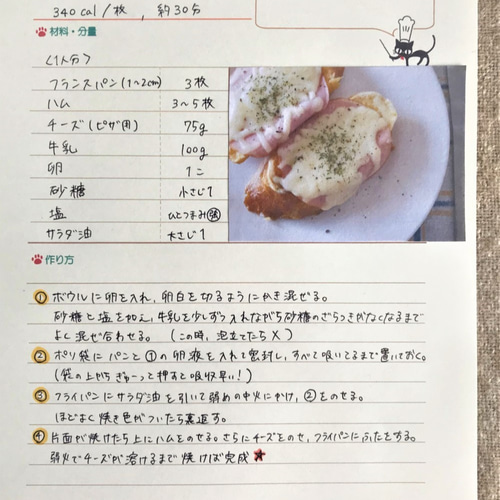 340cal/枚, 約30分
材料・分量
〈1人分〉
フランスパン(1~2cm) 3枚
ハム 3~5枚
チーズ(ピザ用) 75g
牛乳 100g
卵 1コ
砂糖 小さじ1
塩 ひとつまみ強
サラダ油 大さじ1
作り方
① ボウルに卵を入れ、卵白を切るようにかき混ぜる。
砂糖と塩を加え、牛乳を少しずつ入れながら砂糖のざらつきがなくなるまで
よく混ぜ合わせる。(この時、泡立てたら×)
② ポリ袋にパンと①の卵液を入れて密封し、すべて吸いてるまで置いておく。
(袋の上からぎゅーって押すと吸収早い!)
③ フライパンにサラダ油を引いて弱めの中火にかけ、②をのせる。
ほどよく焼き色がついたら裏返す。
④ 片面が焼けたら上にハムをのせる。さらにチーズをのせ、フライパンにふたをする。
弱火でチーズが溶けるまで焼けば完成★